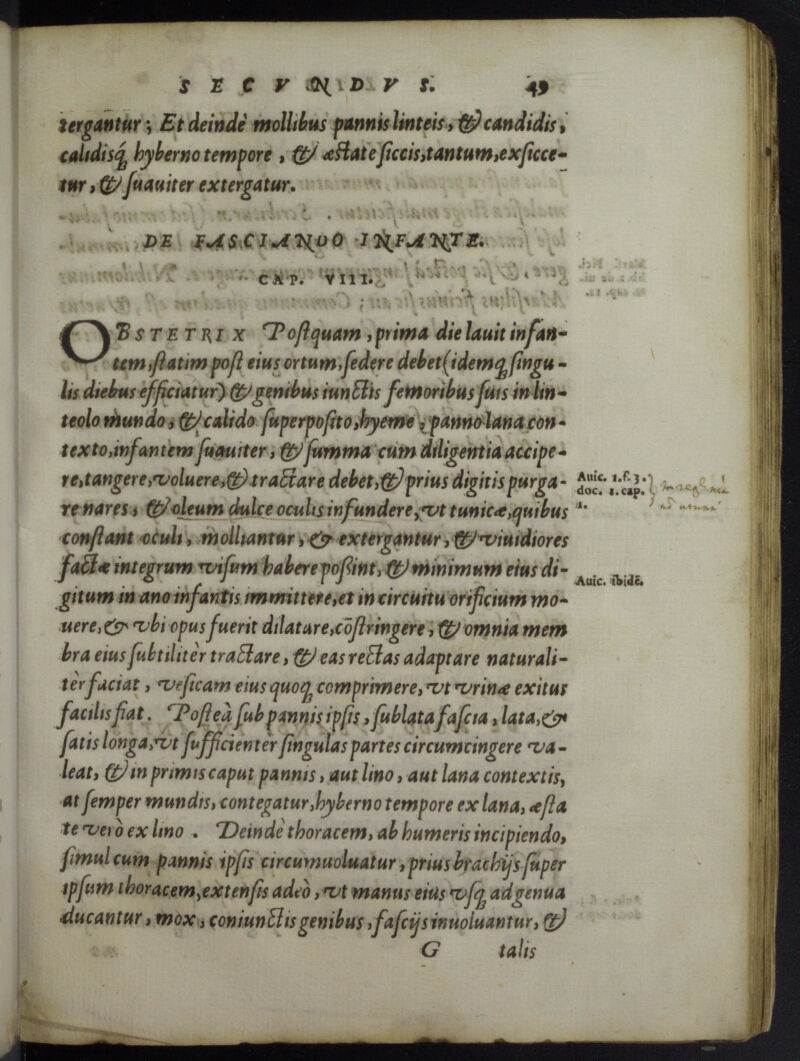 SECVNDVS. 49
tergantur; Et deindè mollibus pannis linteis, & candidis,
calidisq; hyberno tempore, & æstate siccis, tantum, exsicce-
tur, & suauiter extergatur.
DE FASCIANDO INFANTE.
CAP. VIII.
OBSTETRIX Postquam, prima die lauit infan-
tem, statim post eius ortum, sedere debet (idemq; singu-
lis diebus efficiatur) & genibus iunctis femoribus suis in lin-
teolo mundo, & calido superposito, hyeme, panno lana con-
texto, infantem suauiter, & summa cum diligentia accipe-
re, tangere, voluere, & tractare debet, & prius digitis purga-
re nares, & oleum dulce oculis infundere, vt tunicæ, quibus
constant oculi, molliantur, & extergantur, & viuidiores
factæ integrum visum habere possint, & minimum eius di-
gitum in ano infantis immittere, et in circuitu orificium mo-
uere, & vbi opus fuerit dilatare, cõstringere, & omnia mem
bra eius subtilitèr tractare, & eas rectas adaptare naturali-
tèr faciat, vesicam eius quoq; comprimere, vt vrinæ exitus
facilis fiat. Posteà sub pannis ipsis, sublata fascia, lata, &
satis longa, vt sufficientèr singulas partes circumcingere va-
leat, & in primis caput pannis, aut lino, aut lana contextis,
at semper mundis, contegatur, hyberno tempore ex lana, æsta
te verò ex lino. Deindè thoracem, ab humeris incipiendo,
simul cum pannis ipsis circumuoluatur, prius brachijs super
ipsum thoracem, extensis adeò, vt manus eius vsq; ad genua
ducantur, mox, coniunctis genibus, fascijs inuoluantur, &
G talis
Auic. 1.f.3.
doc. 1.cap.
1.
Auic. ibidē.